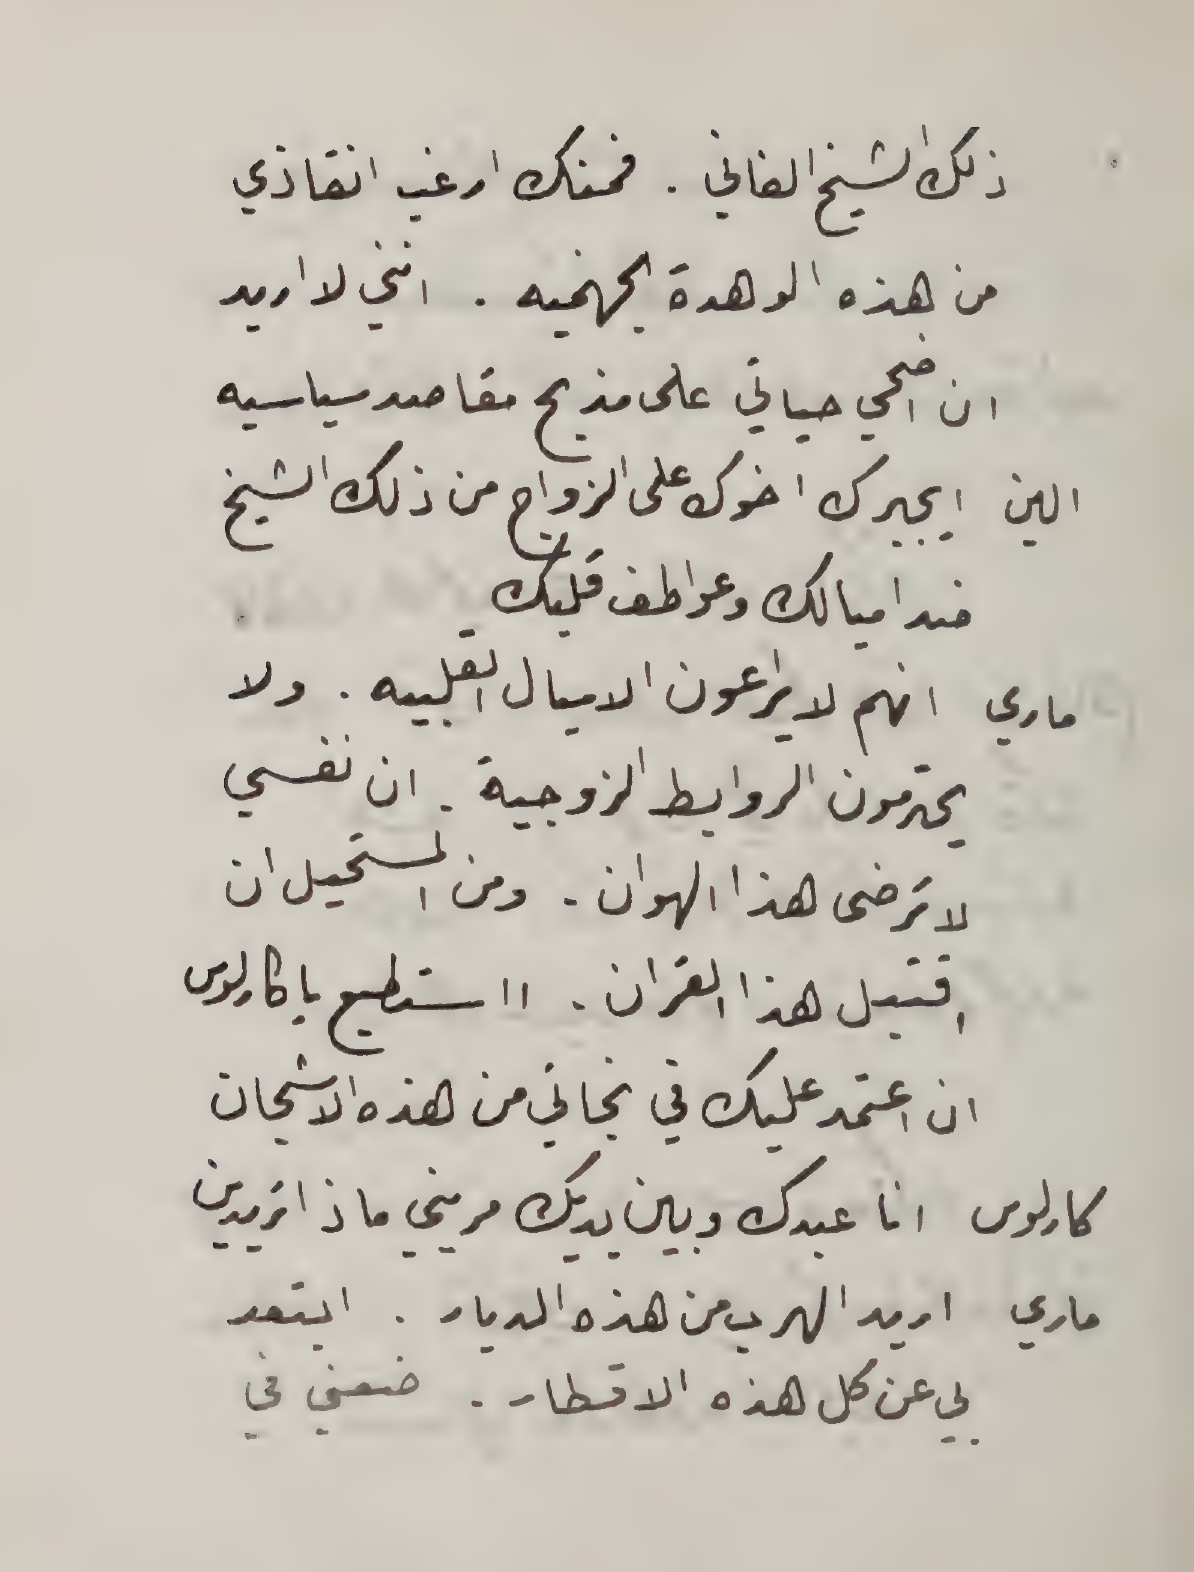 ذلك الشيخ الفاني . فمنك ارغب انقاذي
من هذه الوهدة الجهنميه . انني لا اريد
ان اضحي حياتي على مذبح مقاصد سياسيه
الين ايجبرك اخوك على الزواج من ذلك الشيخ
ضد اميالك وعواطف قلبك
ماري انهم لا يراعون الاميال القلبيه . ولا
يحترمون الروابط الزوجية . ان نفسي
لا ترضى هذا الهوان . ومن المستحيل ان
اقتبل هذا القران . ااستطيع يا كارلوس
ان اعتمد عليك في نجاتي من هذه الاشجان
كارلوس انا عبدك وبين يديك مريني ماذا تريدين
ماري اريد الهرب من هذه الديار . ابتعد
بي عن كل هذه الاقطار . ضعني في